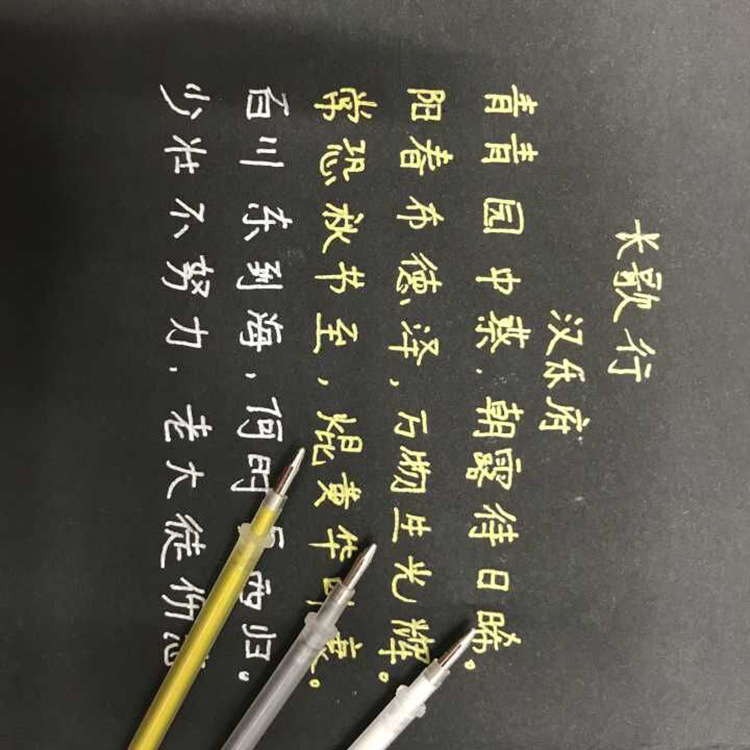 长歌行
汉乐府
青青园中葵,朝露待日晞。
阳春布德泽,万物生光辉。
常恐秋节至,焜黄华衰。
百川东到海,何时西归。
少壮不努力,老大徒伤悲